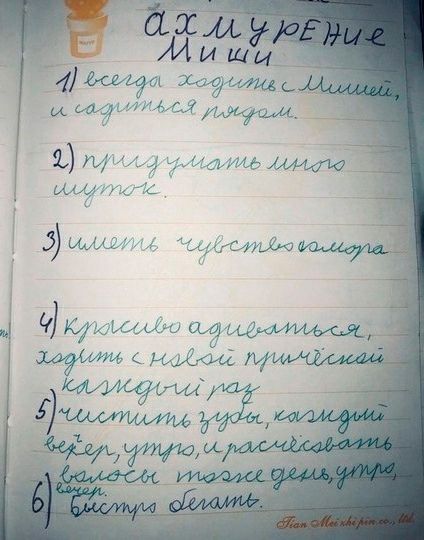 АХМУРЕНИЕ
МИШИ
1) всегда ходить с Мишей,
и садиться рядом.
2) придумать много
шуток
3) иметь чувство юмора
4) красиво адиваться,
ходить с новой причёской
каждый раз
5) чистить зубы, каждый
вечер, утро, и расчёсовать
волосы тоже день, утро,
вечер.
6) Быстро бегать.
Tian Mei zhi pin co., ltd.